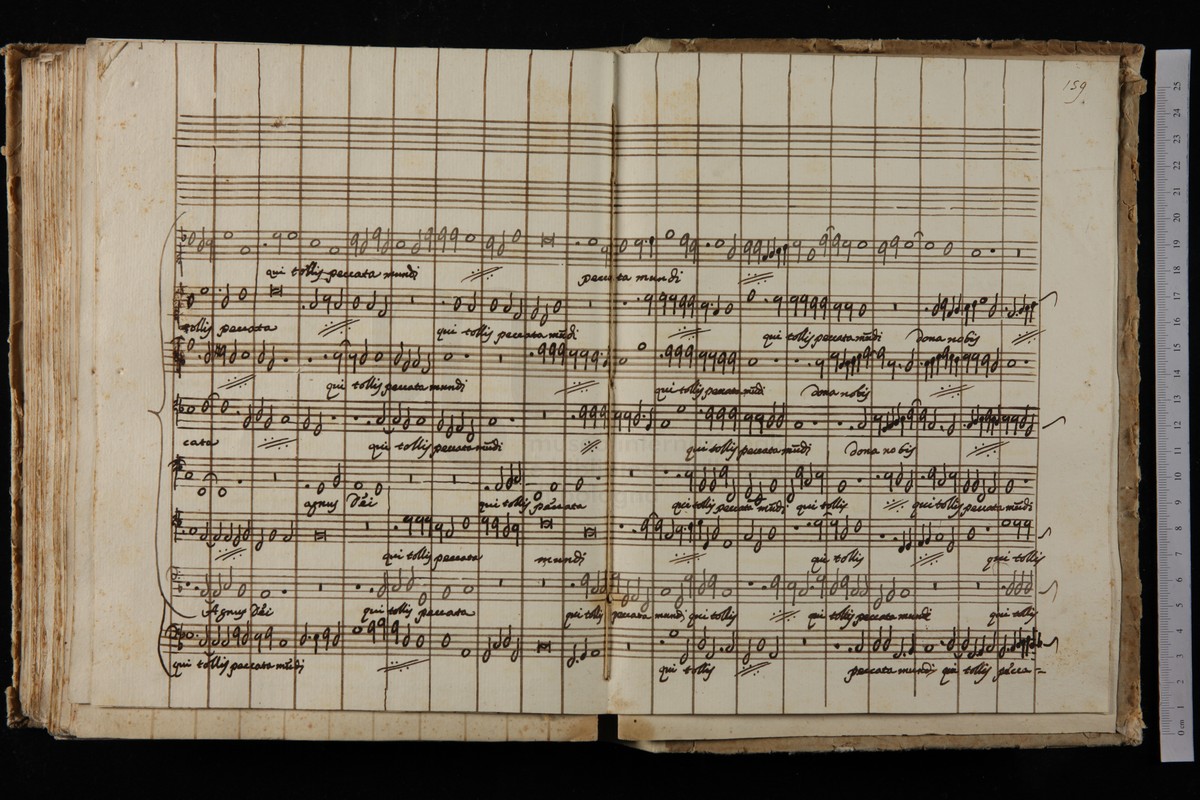 159.
qui tollis peccata mundi peccata mundi
tollis peccata qui tollis peccata mūdi qui tollis peccata mūdi dona nobis
qui tollis peccata mundi qui tollis peccata mūdi dona nobis
cata qui tollis peccata mūdi qui tollis peccata mūdi dona nobis
agnus Dei qui tollis peccata qui tollis peccata mūdi qui tollis qui tollis peccata mūdi
qui tollis peccata mundi qui tollis qui tollis
Agnus Dei qui tollis peccata qui tollis peccata mundi qui tollis qui tollis peccata mundi qui tollis
qui tollis peccata mūdi qui tollis peccata mundi qui tollis pecca-